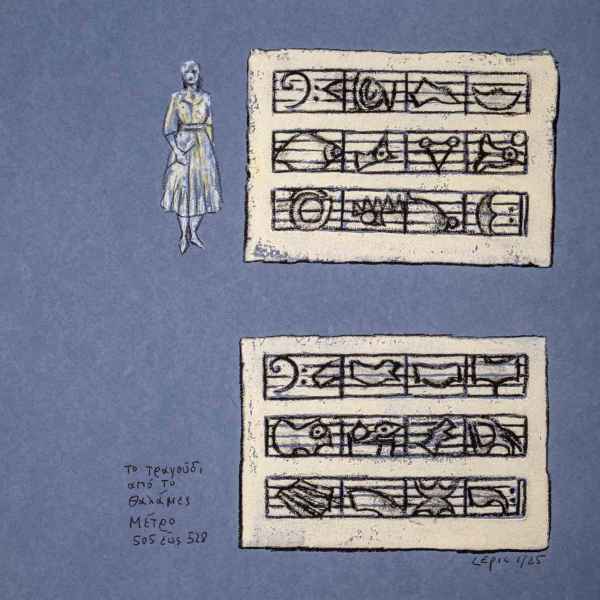 το τραγούδι
από το
θαλάμες
Μέτρο
505 έως 528